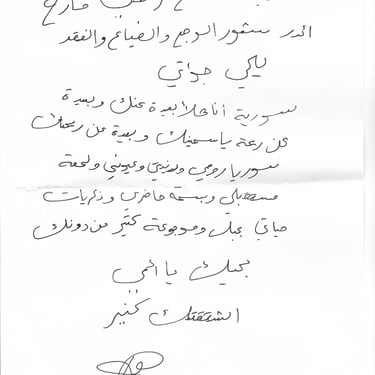 اكتر شعور الوجع والضياع والفقد
يلي جواتي
سورية أنا هلأ بعيدة عنك وبعيدة
عن ريحة ياسمينك وبعيدة عن ريحتك
سوريا روحي ودنيتي وعيوني ولحقة
مستقبلي وبسمة حاضري وذكريات
حياتي بحبك وموجوعة كتير من دونك
بحبك يا امي
اشتقتلك كتير